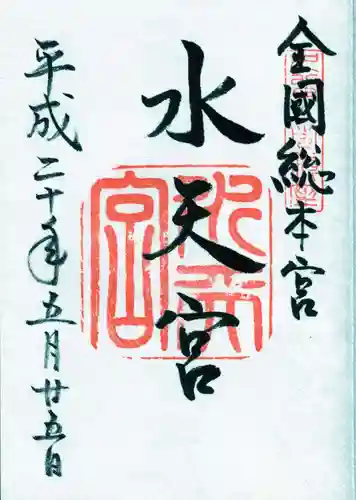 全國総本宮
水天宮
平成二十年五月廿五日